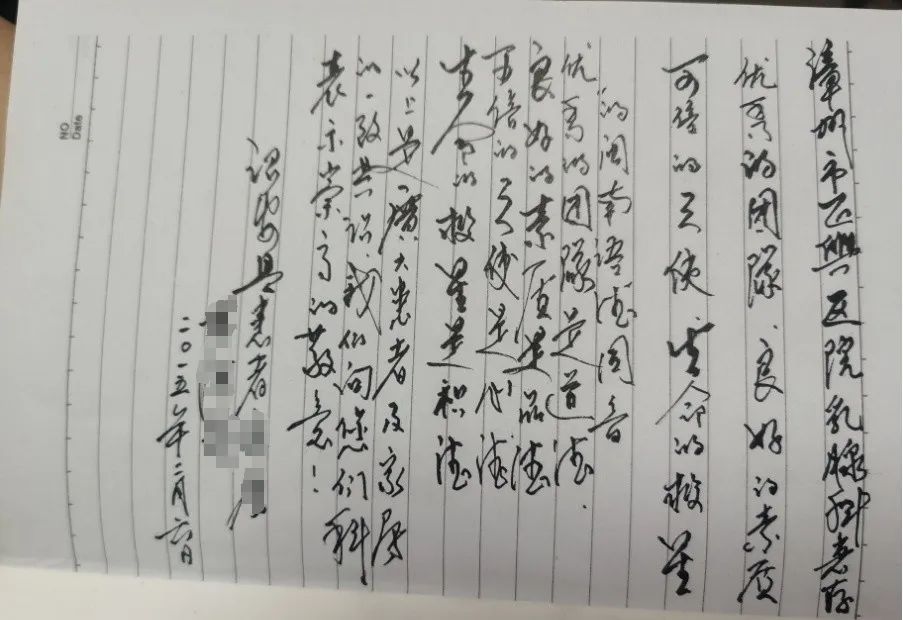 漳州市正興医院乳腺科惠存
优秀的团隊、良好的素质
可信的天使、生命的救星
的闽南语德同音
优秀的团隊是道德.
良好的素质是品德
可信的天使是心德
生命的救星是积德
以上是廣大患者及家属
的一致共识.我们向您们科
表示崇高的敬意!
诏安县患者
二〇一五年二月六日
NO
Date